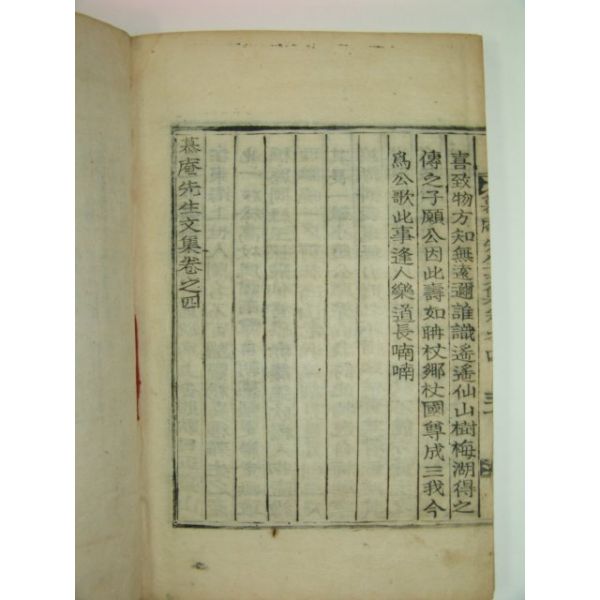 喜致物方知無遠邇誰識遙遙仙山樹梅湖得之
傳之子願公因此壽如聃杖鄉杖國尊成三我今
爲公歌此事逢人樂道長喃喃
慕庵先生文集卷之四